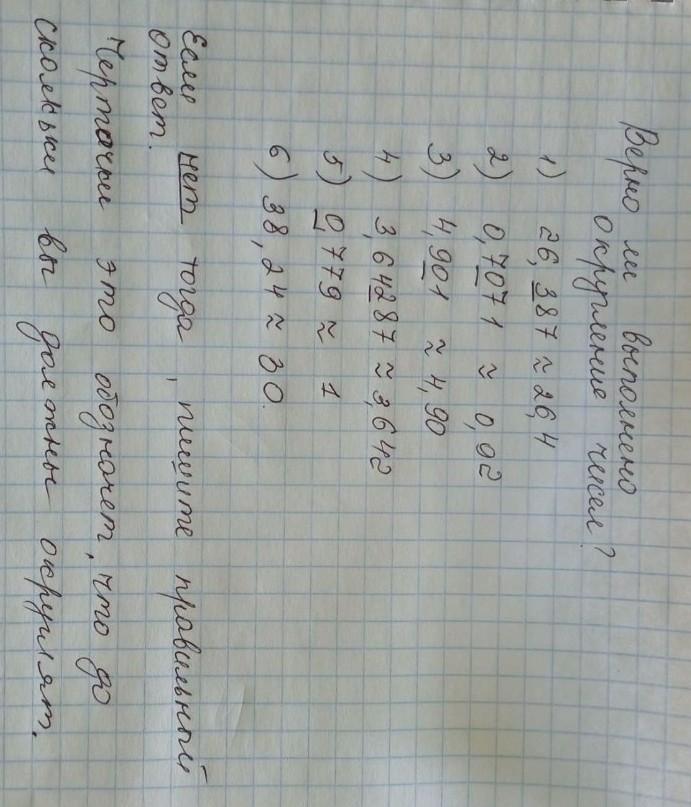 Верно ли выполнено
округление чисел?
1) 26,387 ≈ 26,4
2) 0,7071 ≈ 0,92
3) 4,901 ≈ 4,90
4) 3,64287 ≈ 3,642
5) 0,779 ≈ 1
6) 38,24 ≈ 30.
Если нет тогда, пишите правильный
ответ.
Черточки это обозначет, что до
сколькьи вы должны округлят.